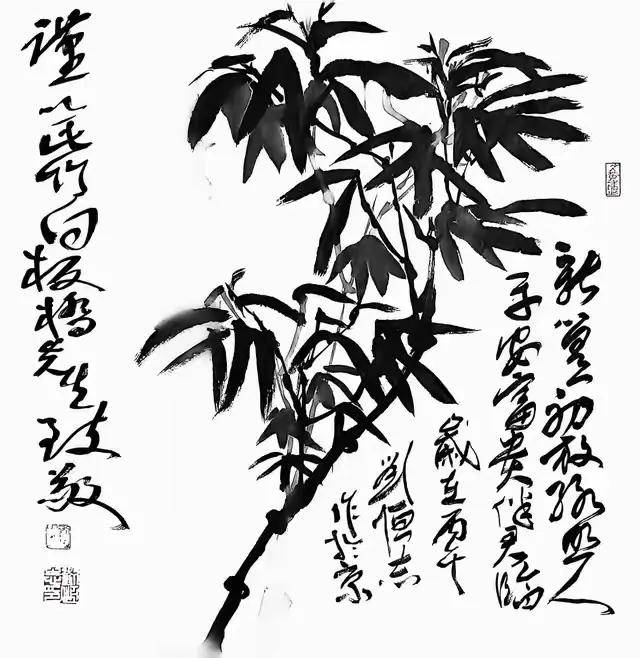 新篁初放绿照人
平安富贵伴君临
歲在丙午
劉恒志
作於京
謹以此竹向板橋先生致敬